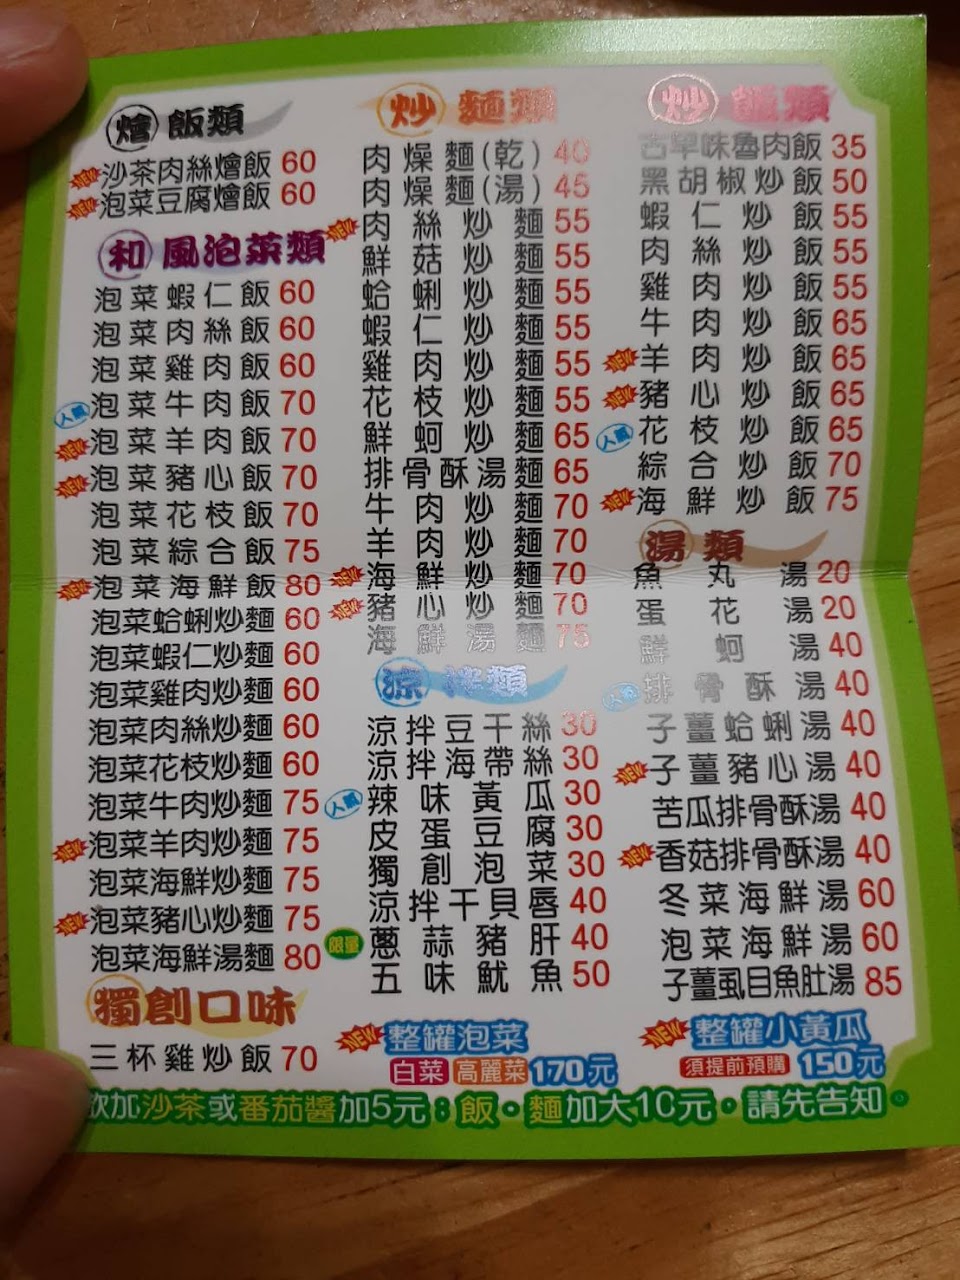 燴飯類
NEW 沙茶肉絲燴飯 60
NEW 泡菜豆腐燴飯 60
和風泡菜類
泡菜蝦仁飯 60
泡菜肉絲飯 60
泡菜雞肉飯 60
人氣 泡菜牛肉飯 70
NEW 泡菜羊肉飯 70
NEW 泡菜豬心飯 70
泡菜花枝飯 70
泡菜綜合飯 75
NEW 泡菜海鮮飯 80
泡菜蛤蜊炒麵 60
泡菜蝦仁炒麵 60
泡菜雞肉炒麵 60
泡菜肉絲炒麵 60
泡菜花枝炒麵 60
泡菜牛肉炒麵 75
NEW 泡菜羊肉炒麵 75
泡菜海鮮炒麵 75
NEW 泡菜豬心炒麵 75
泡菜海鮮湯麵 80
獨創口味
三杯雞炒飯 70
炒麵類
肉燥麵(乾) 40
肉燥麵(湯) 45
NEW 肉絲炒麵 55
鮮菇炒麵 55
蛤蜊炒麵 55
蝦仁炒麵 55
雞肉炒麵 55
花枝炒麵 55
鮮蚵炒麵 65
排骨酥湯麵 65
牛肉炒麵 70
羊肉炒麵 70
NEW 海鮮炒麵 70
NEW 豬心炒麵 70
海鮮湯麵 75
涼拌類
涼拌豆干絲 30
涼拌海帶絲 30
人氣 辣味黃瓜 30
皮蛋豆腐 30
獨創泡菜 30
涼拌干貝唇 40
限量 蔥蒜豬肝 40
五味魷魚 50
炒飯類
古早味魯肉飯 35
黑胡椒炒飯 50
蝦仁炒飯 55
肉絲炒飯 55
雞肉炒飯 55
牛肉炒飯 65
NEW 羊肉炒飯 65
NEW 豬心炒飯 65
人氣 花枝炒飯 65
綜合炒飯 70
NEW 海鮮炒飯 75
湯類
魚丸湯 20
蛋花湯 20
鮮蚵湯 40
人氣 排骨酥湯 40
子薑蛤蜊湯 40
NEW 子薑豬心湯 40
苦瓜排骨酥湯 40
NEW 香菇排骨酥湯 40
冬菜海鮮湯 60
泡菜海鮮湯 60
子薑虱目魚肚湯 85
NEW 整罐泡菜
白菜 高麗菜 170元
NEW 整罐小黃瓜
須提前預購 150元
欲加沙茶或番茄醬加5元；飯・麵加大10元・請先告知。